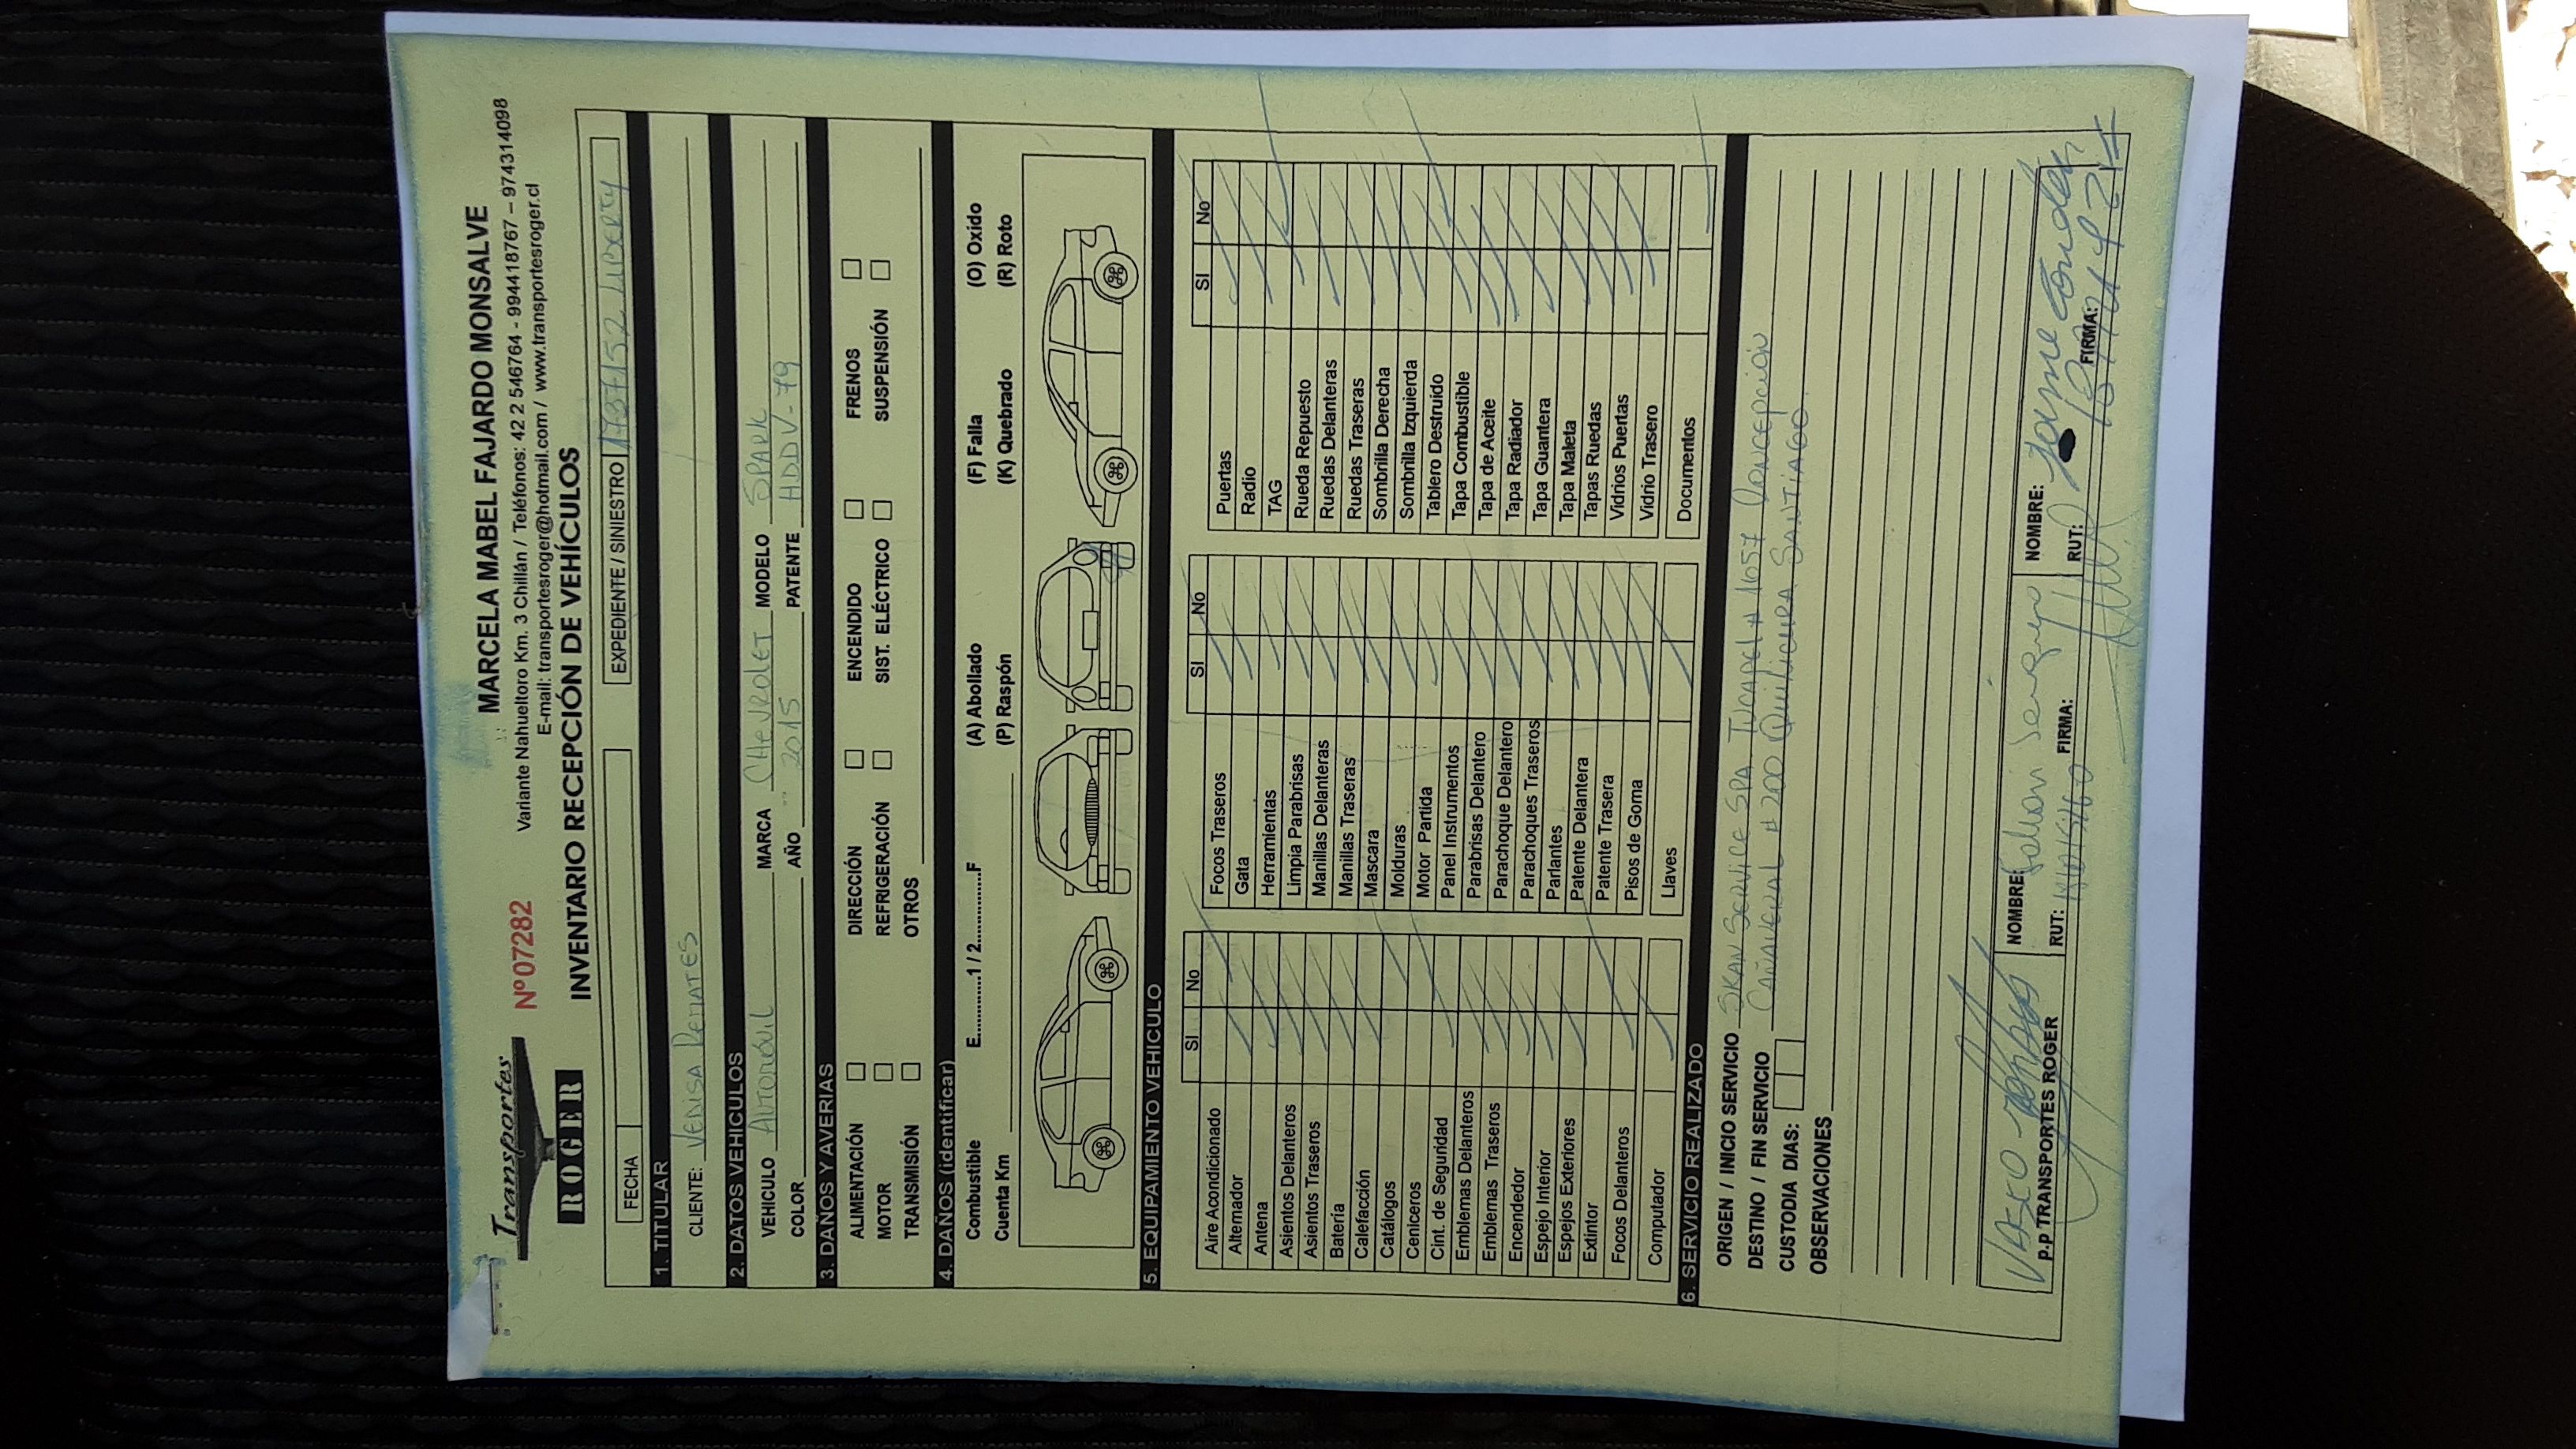 Transportes
ROGER
Nº 07282
MARCELA MABEL FAJARDO MONSALVE
Variante Nahueltoro Km. 3 Chillán / Teléfonos: 42 2 546764 - 994418767 – 974314098
E-mail: transportesroger@hotmail.com / www.transportesroger.cl
INVENTARIO RECEPCIÓN DE VEHÍCULOS
FECHA
EXPEDIENTE / SINIESTRO 1737152 Liberty
1. TITULAR
CLIENTE: VEDISA REMATES
2. DATOS VEHICULOS
VEHICULO AUTOMÓVIL MARCA CHEVROLET MODELO SPARK
COLOR AÑO 2015 PATENTE HDDV-79
3. DAÑOS Y AVERIAS
ALIMENTACIÓN DIRECCIÓN ENCENDIDO FRENOS
MOTOR REFRIGERACIÓN SIST. ELÉCTRICO SUSPENSIÓN
TRANSMISIÓN OTROS
4. DAÑOS (identificar)
Combustible E............1 / 2............F (A) Abollado (F) Falla (O) Oxido
Cuenta Km (P) Raspón (K) Quebrado (R) Roto
5. EQUIPAMIENTO VEHICULO
SI No
Aire Acondicionado
Alternador
Antena
Asientos Delanteros
Asientos Traseros
Batería
Calefacción
Catálogos
Ceniceros
Cint. de Seguridad
Emblemas Delanteros
Emblemas Traseros
Encendedor
Espejo Interior
Espejos Exteriores
Extintor
Focos Delanteros
Computador
SI No
Focos Traseros
Gata
Herramientas
Limpia Parabrisas
Manillas Delanteras
Manillas Traseras
Mascara
Molduras
Motor Partida
Panel Instrumentos
Parabrisas Delantero
Parachoque Delantero
Parachoques Traseros
Parlantes
Patente Delantera
Patente Trasera
Pisos de Goma
Llaves
SI No
Puertas
Radio
TAG
Rueda Repuesto
Ruedas Delanteras
Ruedas Traseras
Sombrilla Derecha
Sombrilla Izquierda
Tablero Destruido
Tapa Combustible
Tapa de Aceite
Tapa Radiador
Tapa Guantera
Tapa Maleta
Tapas Ruedas
Vidrios Puertas
Vidrio Trasero
Documentos
6. SERVICIO REALIZADO
ORIGEN / INICIO SERVICIO SKAN SERVICE SPA TUCAPEL # 1657 CONCEPCIÓN
DESTINO / FIN SERVICIO CAÑAVERAL # 200 QUILICURA SANTIAGO.
CUSTODIA DIAS:
OBSERVACIONES
p.p TRANSPORTES ROGER
NOMBRE: Fabian
RUT: FIRMA:
NOMBRE: Jaime
RUT: FIRMA: